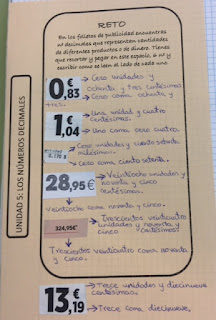 UNIDAD 5: LOS NÚMEROS DECIMALES
RETO
En los folletos de publicidad encuentras
nº decimales que representan cantidades
de diferentes productos o de dinero. Tienes
que recortar y pegar en este espacio, 6 nº y
escribir como se leen al lado de cada uno
0,83
Cero unidades y
ochenta y tres centésimas
Cero coma ochenta y
tres.
1,04
Una unidad y cuatro
centésimas.
Uno coma cero cuatro.
0,170
Cero unidades y ciento setenta
milésimas.
Cero coma ciento setenta.
28,95€
Veintiocho unidades y
noventa y cinco
centésimas.
Veintiocho coma noventa y cinco.
324,95€
Trescientos veinticuatro
unidades y noventa y
cinco centésimas
Trescientos veinticuatro coma noventa
y cinco.
13,19€
Trece unidades y diecinueve
centésimas.
Trece coma diecinueve.